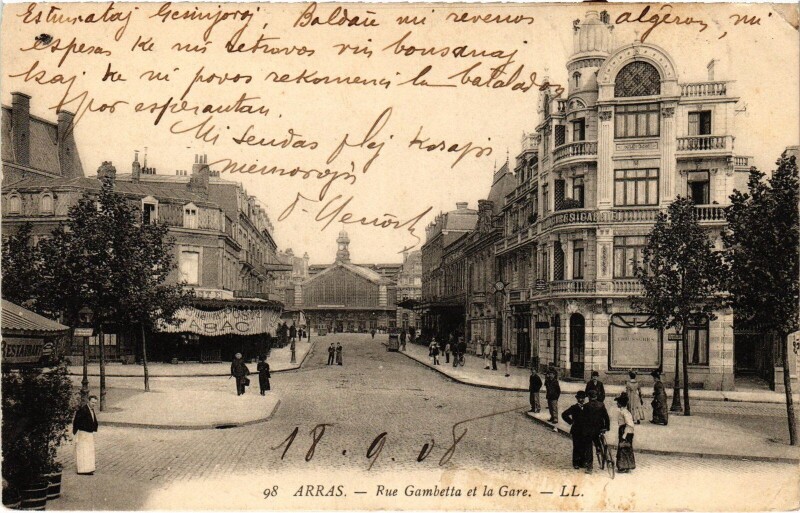 Estimataj Gesinjoroj, Baldaŭ mi revenos algeron, mi
esperas ke mi retrovos vin bonsanaj
kaj ke ni povos rekomenci la bataladon
por esperantan.
Mi sendas plej korajn
memorojn
TABAC
RESTAURANT
18.9.08
98 ARRAS. — Rue Gambetta et la Gare. — LL.